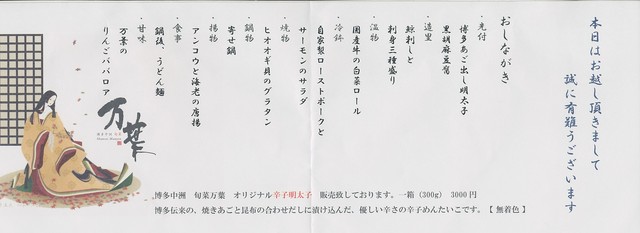 本日はお越し頂きまして
誠に有難うございます
おしながき
・先付
博多あご出し明太子
黒胡麻豆腐
・造里
鯨刺しと
刺身三種盛り
・温物
国産牛の白菜ロール
・冷鉢
自家製ローストポークと
サーモンのサラダ
・焼物
ヒオオギ貝のグラタン
・鍋物
寄せ鍋
・揚物
アンコウと海老の唐揚
・食事
鍋後、うどん麺
・甘味
万葉の
りんごババロア
万葉
博多中洲　旬菜万葉　オリジナル辛子明太子　販売致しております。一箱（300g）　3000円
博多伝来の、焼きあごと昆布の合わせだしに漬け込んだ、優しい辛さの辛子めんたいこです。【 無着色 】